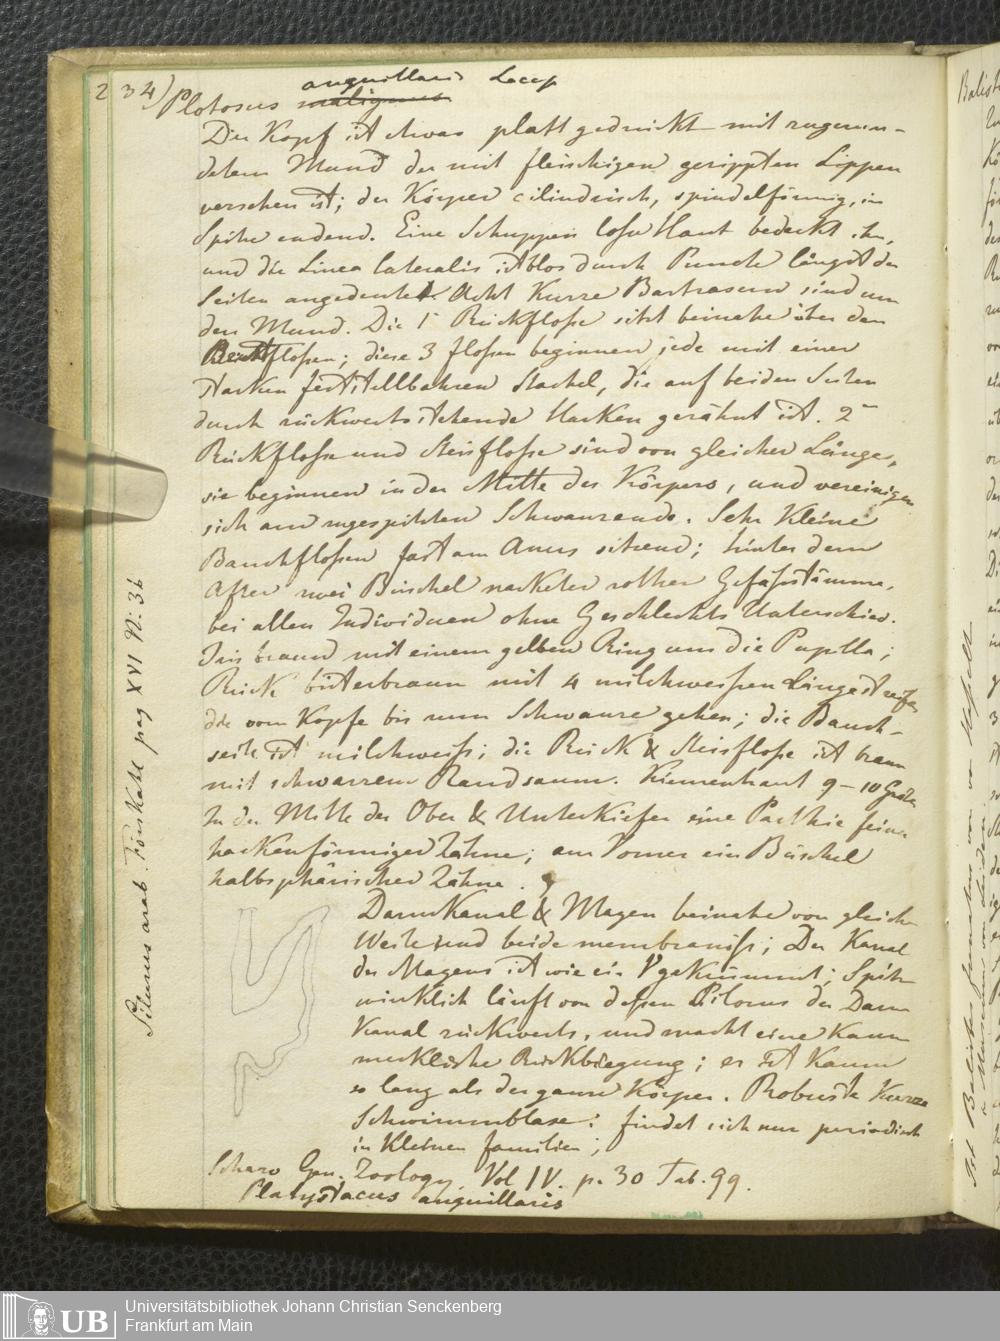 234) Plotosus malignus anguillaris Lacep
Der Kopf ist etwas platt gedruckt mit zugerun-
detem Mund der mit fleischigen gerippten Lippen
versehen ist; der Körper cilindrisch, spindelförmig, in
Spitze endend. Eine Schuppen lose Haut bedeckt ihn,
und die Linea lateralis ist blos durch Puncte längst der
Seiten angedeutet. Acht Kurze Bartfasern sind um
den Mund. Die 1e Rückflosse sitzt beinahe über den
Brustflossen; diese 3 flossen beginnen jede mit einer
starken feststellbahren Stachel, die auf beiden Seiten
durch rückwerts stehende Hacken gezähnt ist. 2e
Rückflosse und Steisflosse sind von gleicher Länge,
sie beginnen in der Mitte des Körpers, und vereinigen
sich am zugespitzten Schwanzende. Sehr Kleine
Bauchflossen fast am Anus sitzend; hinter dem
After zwei Büschel nackter rother Gefässstämme,
bei allen Individuen ohne Geschlechts Unterschied.
Iris braun mit einem gelben Ring um die Pupilla;
Rück bisterbraun mit 4 milchweissen Längestreifen
die vom Kopfe bis zum Schwanze gehen; die Bauch-
seite ist milchweiss; die Rück & Steisflosse ist braun
mit schwarzem Randsaum. Kiemenhaut 9-10 Gräten
In der Mitte der Ober & Unterkiefer eine Parthie feine
hackenförmiger Zähne; am Vomer ein Büschel
halbsphärischer Zähne.
DarmKanal & Magen beinahe von gleich
Weite und beide membranöss; Der Kanal
des Magens ist wie ein V gekrümmt; Spitz
winklich läuft von dessen Pilorus der Darm
Kanal rückwerts, und macht eine Kaum
merkliche Rückbiegung; er ist Kaum
so lang als der ganze Körper. Robuste Kurze
Schwimmblase: findet sich nur periodisch
in Kleinen familien;
Schaw Gen. Zoology. Vol IV. p. 30 Tab. 99.
Platystacus anguillaris
Silurus arab. Forskahl pag XVI N: 36
Universitätsbibliothek Johann Christian Senckenberg
Frankfurt am Main
UB